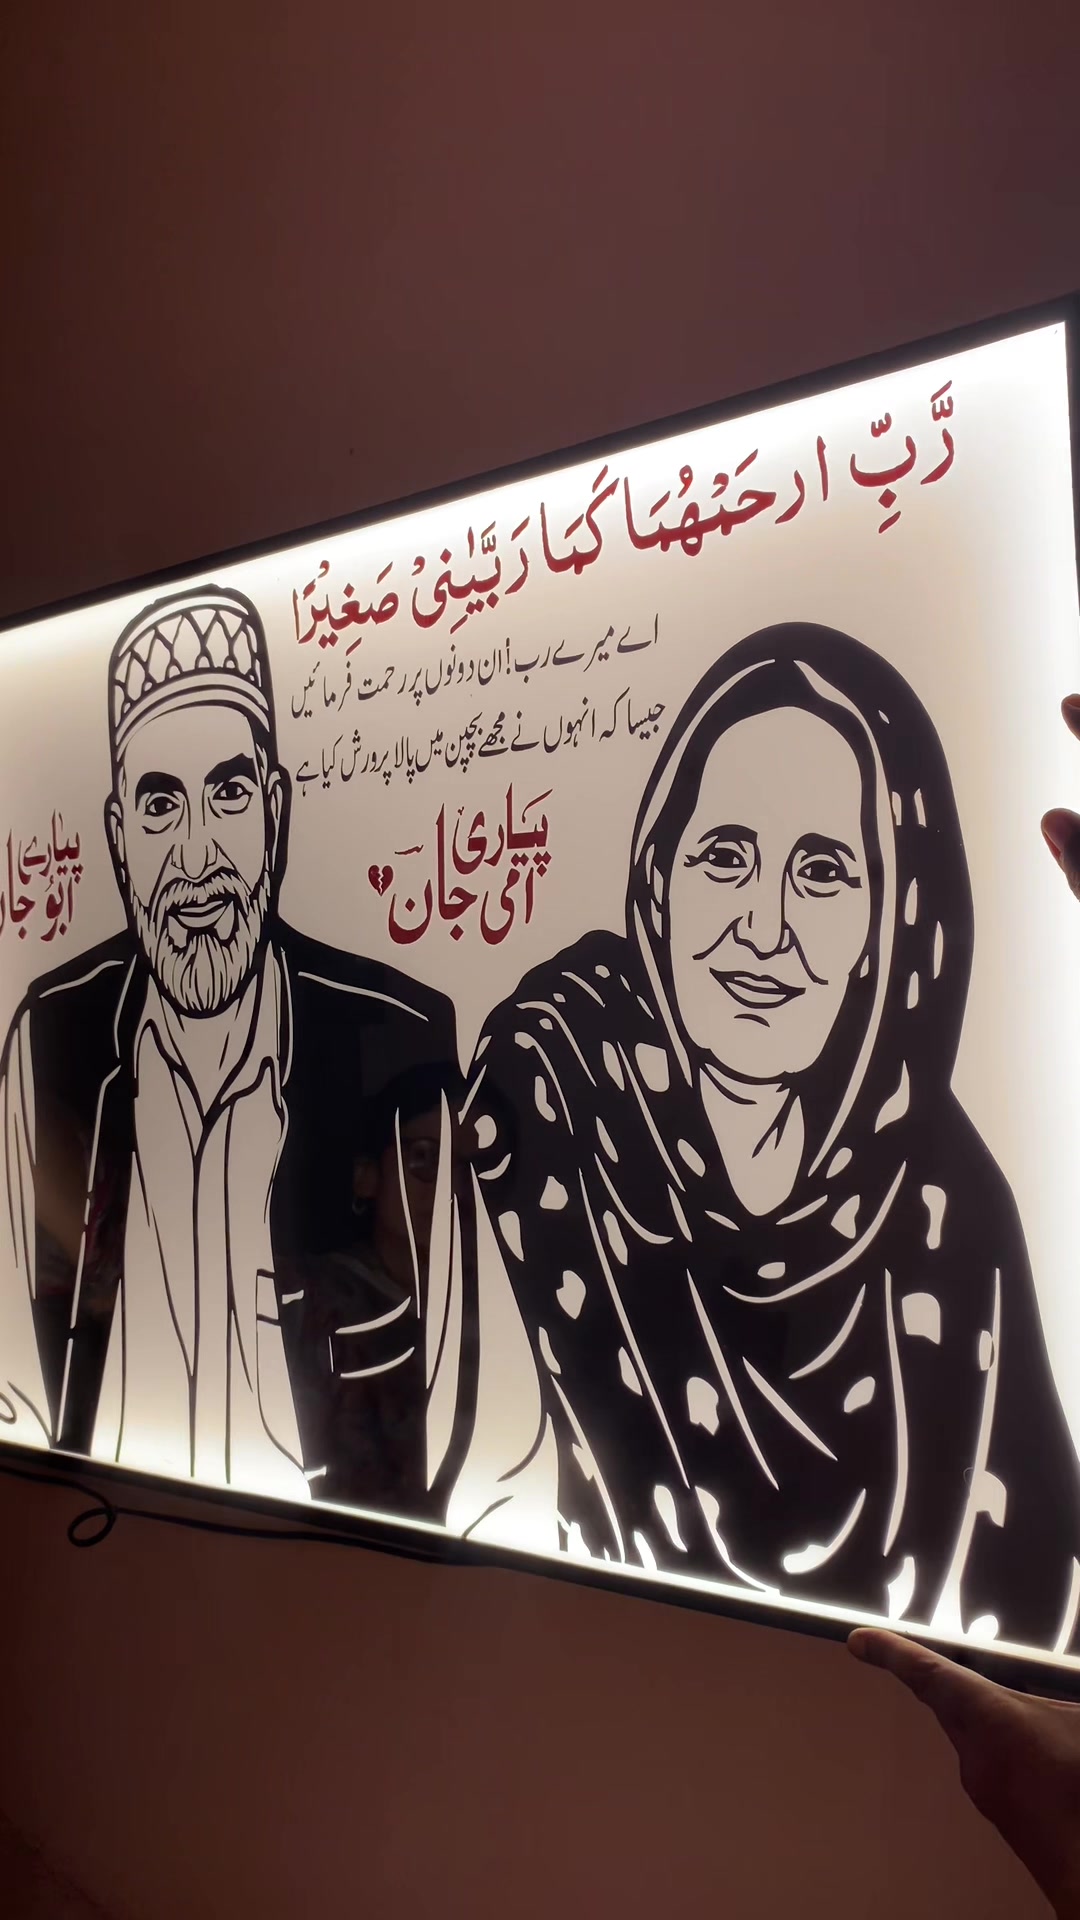 رَّبِّ ارحَمْهُمَا كَمَا رَبَّيٰنِیْ صَغِيْرًا
اے میرے رب! ان دونوں پر رحمت فرمائیں
جیسا کہ انہوں نے مجھے بچپن میں پالا پرورش کیا ہے
پیاری
امی جان
پیارے
ابُو جان